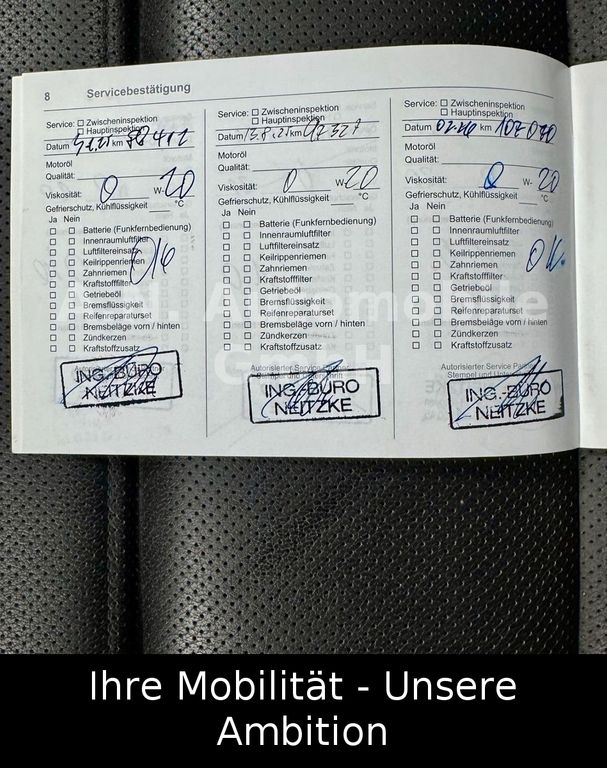 8 Servicebestätigung
Service: ☐ Zwischeninspektion
☐ Hauptinspektion
Datum km
Motoröl
Qualität:
Viskosität: 0 W- 20
Gefrierschutz, Kühlflüssigkeit °C
Ja Nein
☐ ☐ Batterie (Funkfernbedienung)
☐ ☐ Innenraumluftfilter
☐ ☐ Luftfiltereinsatz
☐ ☐ Keilrippenriemen
☐ ☐ Zahnriemen
☐ ☐ Kraftstofffilter
☐ ☐ Getriebeöl
☐ ☐ Bremsflüssigkeit
☐ ☐ Reifenreparaturset
☐ ☐ Bremsbeläge vorn / hinten
☐ ☐ Zündkerzen
☐ ☐ Kraftstoffzusatz
ING.-BÜRO
NEITZKE
Service: ☐ Zwischeninspektion
☐ Hauptinspektion
Datum 13.8.25 km 97327
Motoröl
Qualität:
Viskosität: 0 W- 20
Gefrierschutz, Kühlflüssigkeit °C
Ja Nein
☐ ☐ Batterie (Funkfernbedienung)
☐ ☐ Innenraumluftfilter
☐ ☐ Luftfiltereinsatz
☐ ☐ Keilrippenriemen
☐ ☐ Zahnriemen
☐ ☐ Kraftstofffilter
☐ ☐ Getriebeöl
☐ ☐ Bremsflüssigkeit
☐ ☐ Reifenreparaturset
☐ ☐ Bremsbeläge vorn / hinten
☐ ☐ Zündkerzen
☐ ☐ Kraftstoffzusatz
Autorisierter Service
ING.-BÜRO
NEITZKE
Service: ☐ Zwischeninspektion
☐ Hauptinspektion
Datum 02.26 km 107070
Motoröl
Qualität:
Viskosität: 0 W- 20
Gefrierschutz, Kühlflüssigkeit °C
Ja Nein
☐ ☐ Batterie (Funkfernbedienung)
☐ ☐ Innenraumluftfilter
☐ ☐ Luftfiltereinsatz
☐ ☐ Keilrippenriemen
☐ ☐ Zahnriemen
☐ ☐ Kraftstofffilter
☐ ☐ Getriebeöl
☐ ☐ Bremsflüssigkeit
☐ ☐ Reifenreparaturset
☐ ☐ Bremsbeläge vorn / hinten
☐ ☐ Zündkerzen
☐ ☐ Kraftstoffzusatz
Autorisierter Service
Stempel und
ING.-BÜRO
NEITZKE
Ihre Mobilität - Unsere
Ambition